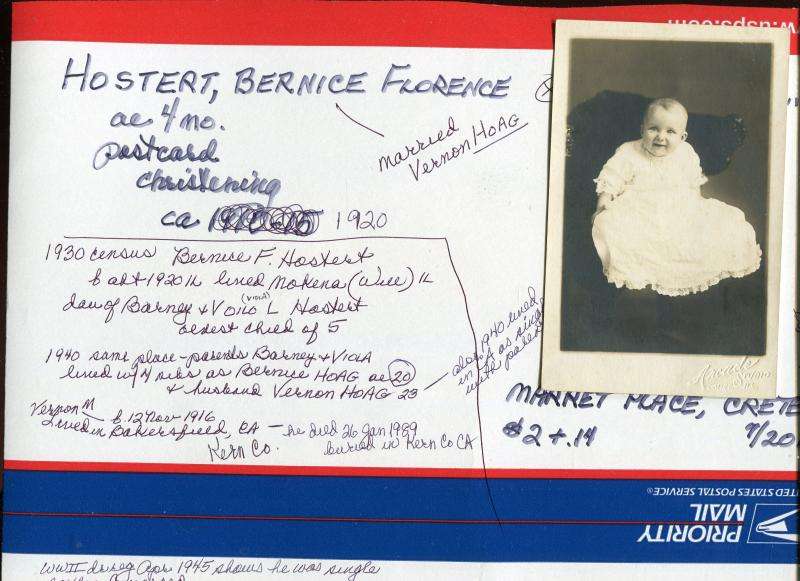 w.usps.com
HOSTERT, BERNICE FLORENCE
ae 4 mo.
postcard
christening
ca 1920
married
Vernon HOAG
1930 census Bernice F. Hostert
b abt 1920 IL lived Mokena (Will) IL
dau of Barney & L Hostert
(Viola)
oldest child of 5
1940 same place - parents Barney & Viola
lived w/ 4 sibs as Bernice HOAG ae 20
& husband Vernon HOAG 23
also 1940 lived
in CA as single
with parents
Vernon M b. 12 Nov 1916
lived in Bakersfield, CA - he died 26 Jan 1989
Kern Co. buried in Kern Co CA
MARKET PLACE, CRETE
$2 + .14 7/20
UNITED STATES POSTAL SERVICE®
PRIORITY
MAIL
WWII draft Apr 1945 shows he was single